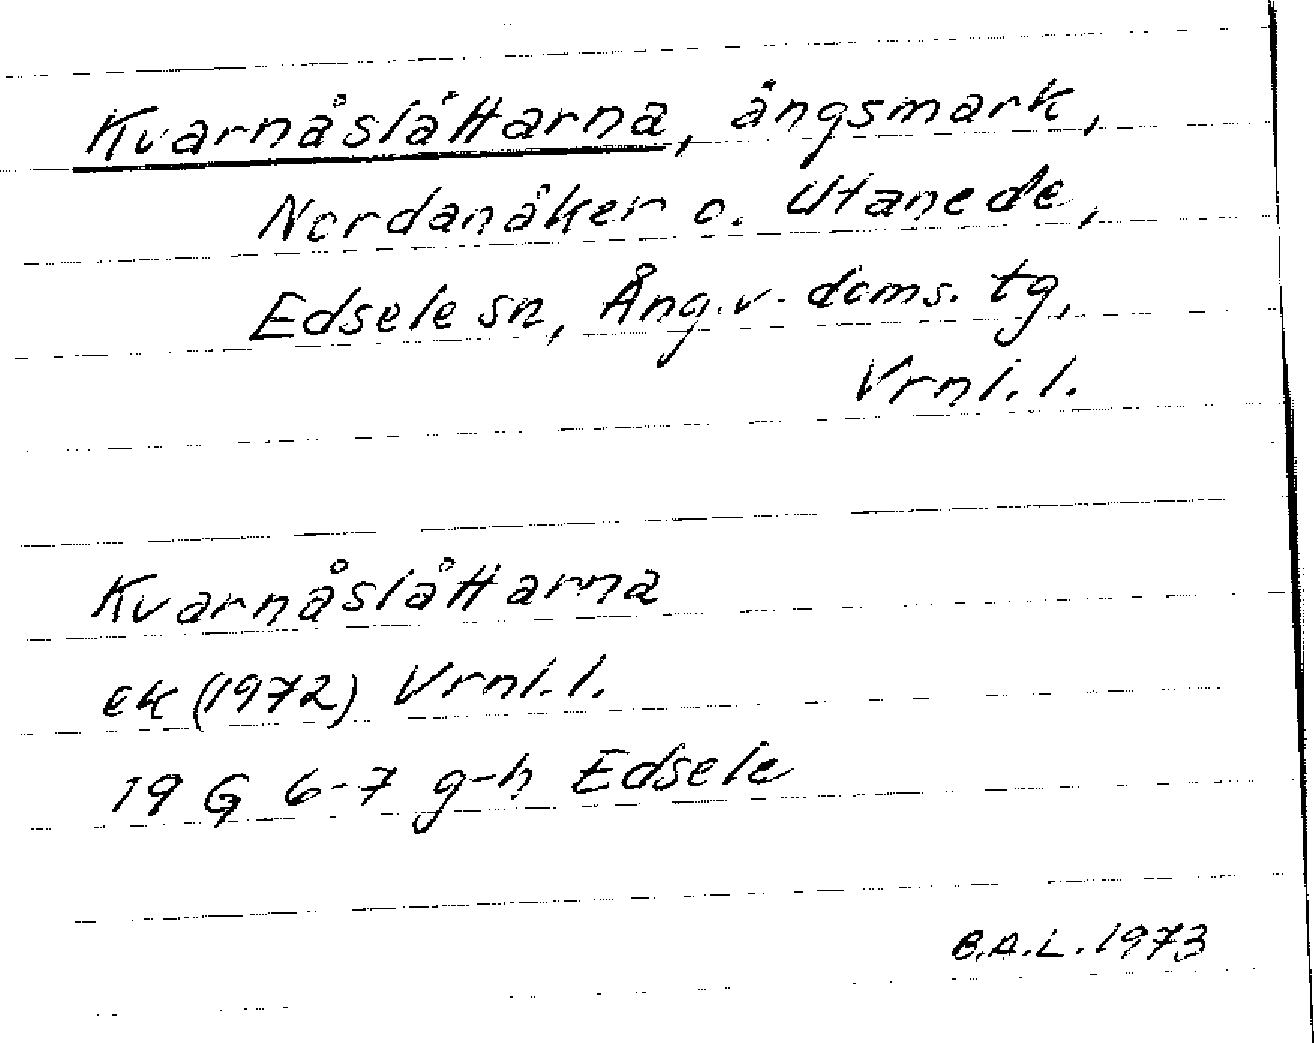 Kvarnåslåttarna, ängsmark,
Nordanåker o. Utanede,
Edsele sn, Ång.v. doms. tg,
Vrnl. l.
Kvarnåslåttarna
ek (1972) Vrnl. l.
19 G 6-7 g-h Edsele
B.A.L. 1973